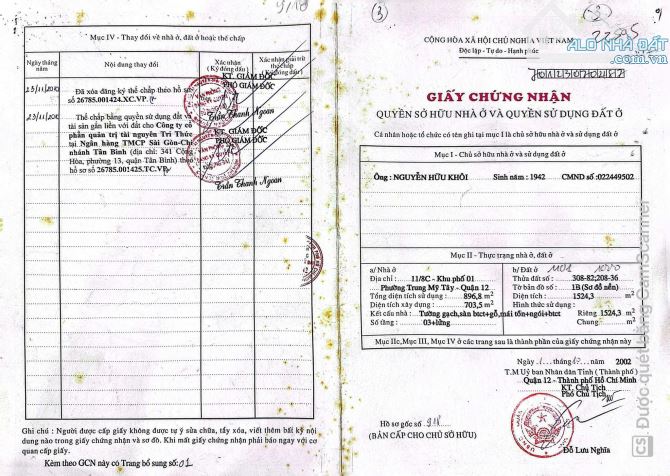 Mục IV - Thay đổi về nhà ở, đất ở hoặc thế chấp
Ngày tháng năm
Nội dung thay đổi
Xác nhận (Ký đóng dấu)
Xác nhận giải trừ thế chấp (Ký đóng dấu)
KT. GIÁM ĐỐC
PHÓ GIÁM ĐỐC
Đã xóa đăng ký thế chấp theo hồ sơ
số 26785.001424.XC.VP.
Trần Thanh Ngoan
Thế chấp bằng quyền sử dụng đất và
tài sản gắn liền với đất cho Công ty cổ
phần quản trị tài nguyên Tri Thức
tại Ngân hàng TMCP Sài Gòn-Chi
nhánh Tân Bình (địa chỉ: 341 Cộng
Hòa, phường 13, quận Tân Bình) theo
hồ sơ số 26785.001425.TC.VP.
KT. GIÁM ĐỐC
PHÓ GIÁM ĐỐC
Trần Thanh Ngoan
Ghi chú : Người được cấp giấy không được tự ý sửa chữa, tẩy xóa, viết thêm bất kỳ nội
dung nào trong giấy chứng nhận và sơ đồ. Khi mất giấy chứng nhận phải báo ngay với cơ
quan cấp giấy.
Kèm theo GCN này có Trang bổ sung số: 01
(3)
CỘNG HÒA XÃ HỘI CHỦ NGHĨA VIỆT NAM
Độc lập - Tự do - Hạnh phúc
ALO NHÀ ĐẤT
.com.vn
GIẤY CHỨNG NHẬN
QUYỀN SỞ HỮU NHÀ Ở VÀ QUYỀN SỬ DỤNG ĐẤT Ở
Cá nhân hoặc tổ chức có tên ghi tại mục I là chủ sở hữu nhà ở và sử dụng đất ở
Mục I - Chủ sở hữu nhà ở và sử dụng đất ở
Ông : NGUYỄN HỮU KHÔI Sinh năm : 1942 CMND số :022449502
Mục II - Thực trạng nhà ở, đất ở
a/ Nhà ở
Địa chỉ : 11/8C - Khu phố 01
Phường Trung Mỹ Tây - Quận 12
Tổng diện tích sử dụng : 896,8 m2
Diện tích xây dựng : 703,5 m2
Kết cấu nhà : Tường gạch, sàn btct+gỗ, mái tôn+ngói+btct
Số tầng : 03+lửng
b/ Đất ở
Thửa đất số : 308-82;208-36
Tờ bản đồ số : 1B (Sơ đồ nền)
Diện tích : 1524,3 m2
Hình thức sử dụng :
Riêng 1524,3 m2
Chung m2
Mục IIc, Mục III, Mục IV ở các trang sau là thành phần của giấy chứng nhận này
2002
T.M Uỷ ban Nhân dân Tỉnh ( Thành phố )
Quận 12 - Thành phố Hồ Chí Minh
KT. Chủ Tịch
Phó Chủ Tịch
Hồ sơ gốc số
(BẢN CẤP CHO CHỦ SỞ HỮU)
Đỗ Lưu Nghĩa
CS Được quét bằng CamScanner